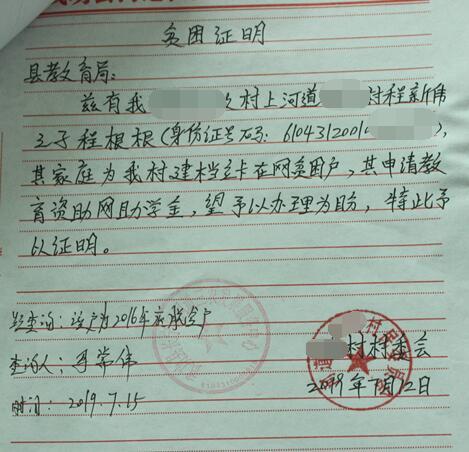 贫困证明
县教育局:
兹有我 村上河道 村程新伟
之子程根根(身份证号码: 610431200 ),
其家庭为我村建档立卡在网贫困户,其申请教
育资助网助学金,望予以办理为盼,特此予
以证明。
经查询:该户为2016年 户
查询人:
村村委会
2019年7月12日
时间:2019.7.15